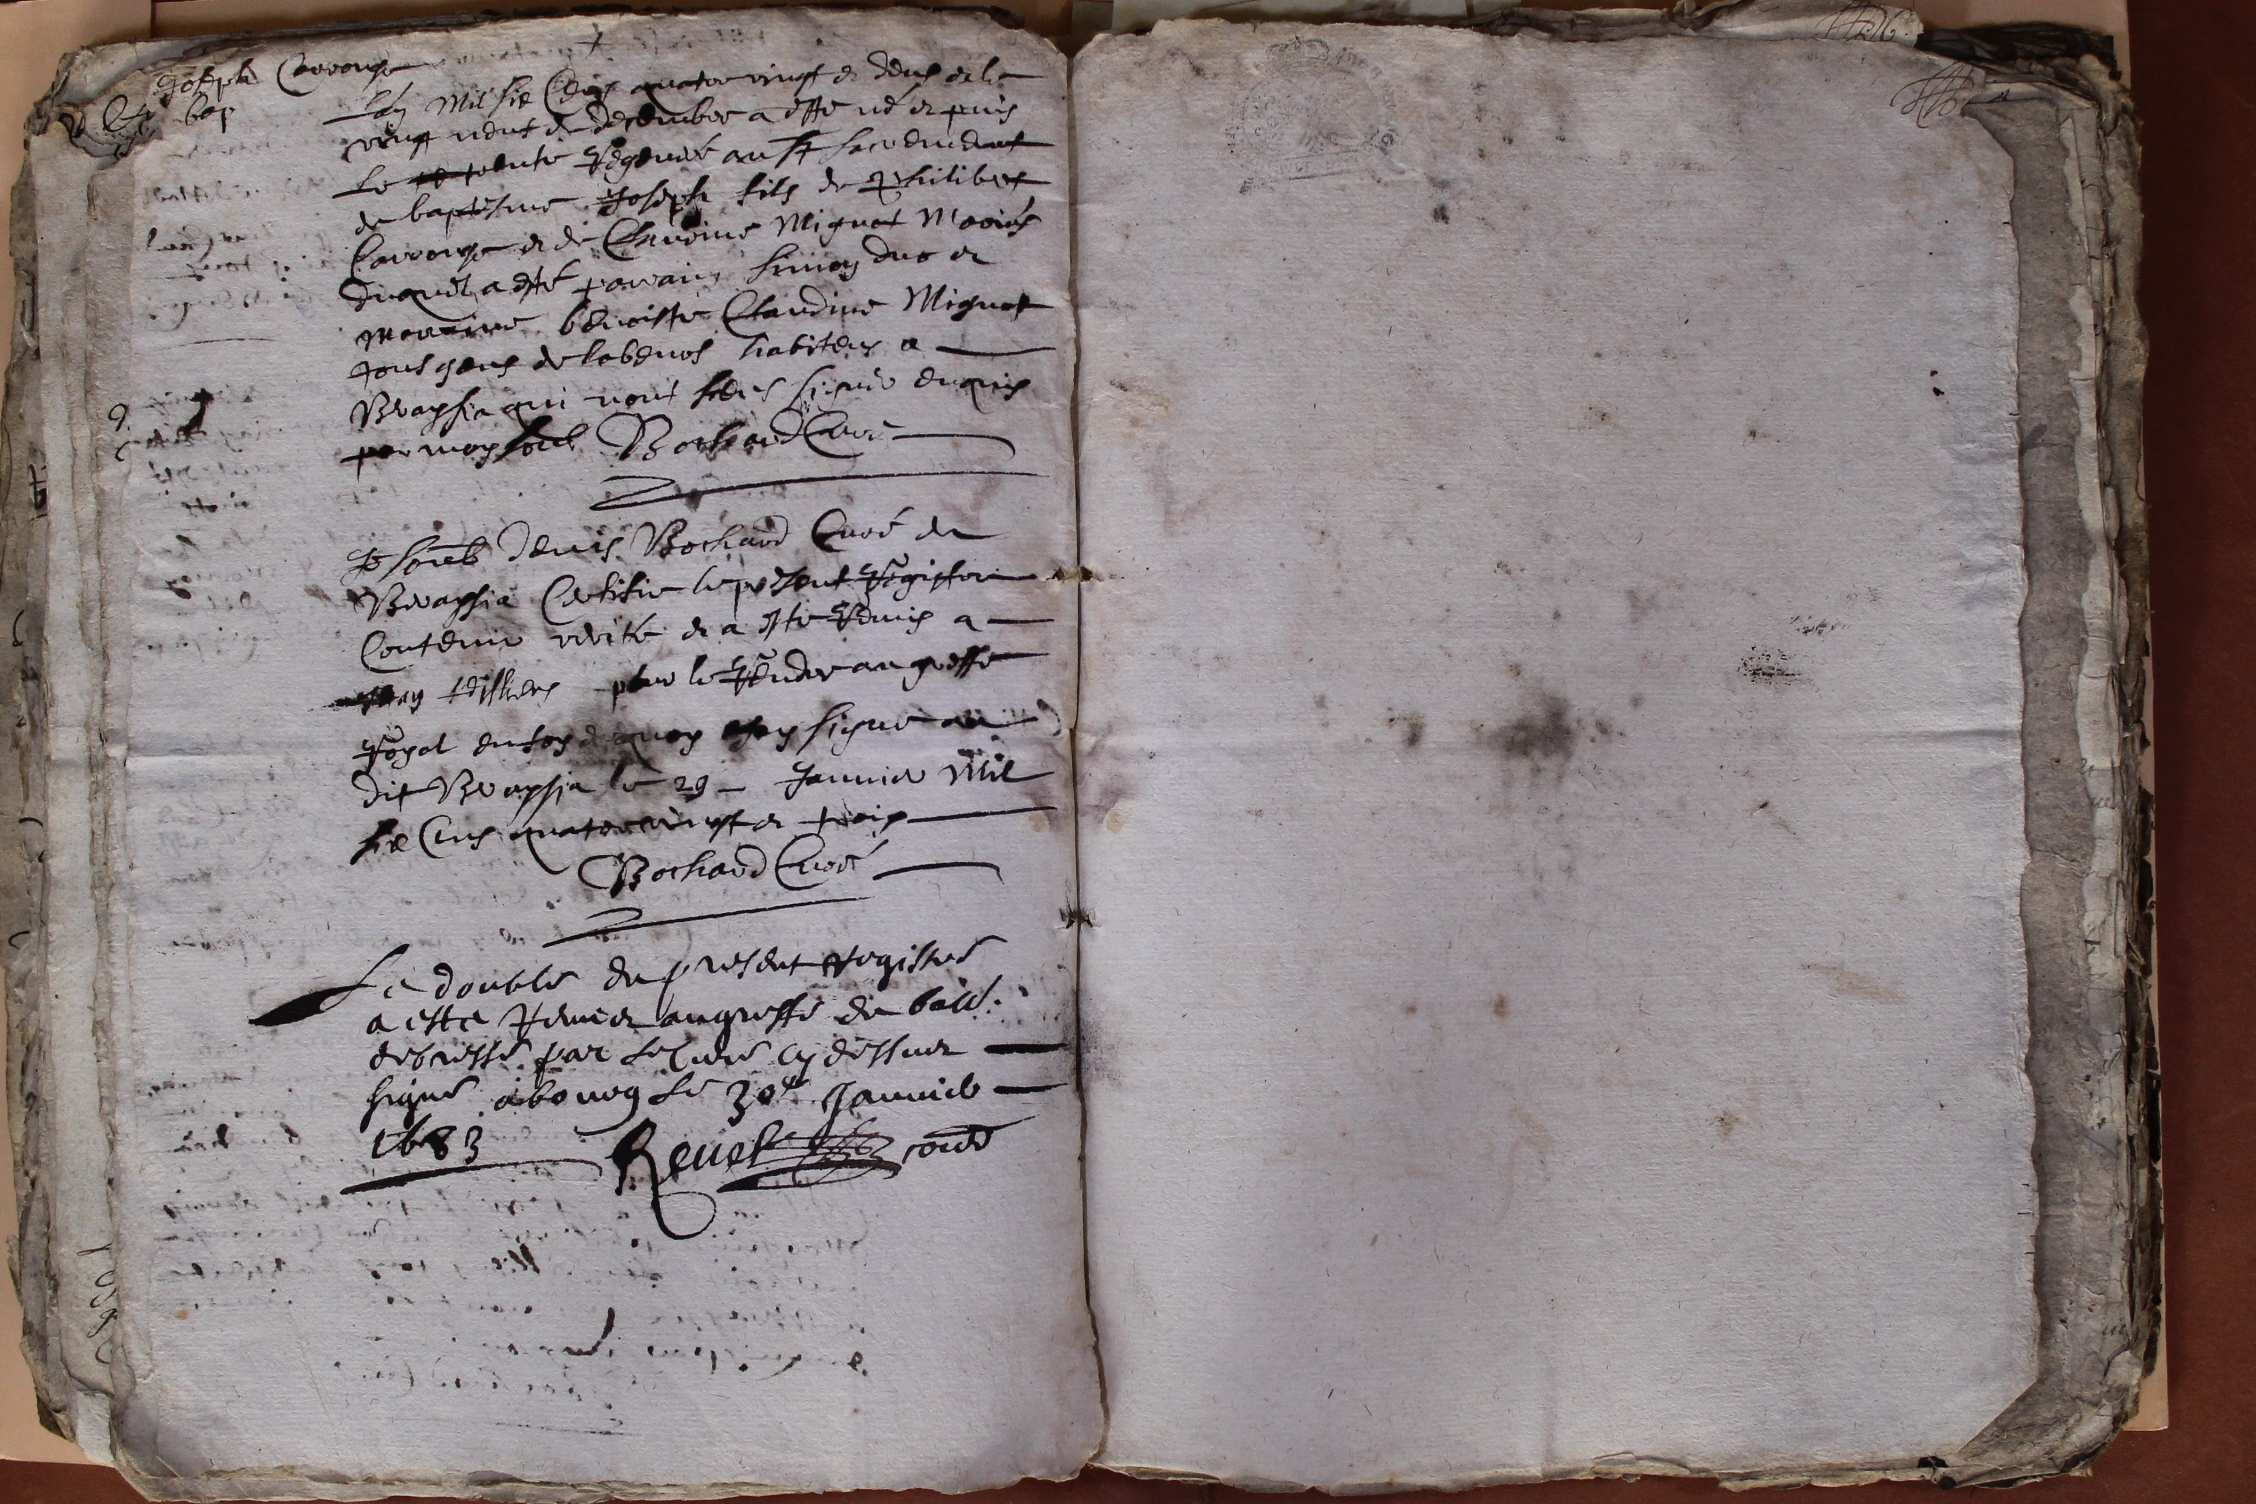 Joseph Carronge
bap
Lan Mil six Cens quatre vingt et deux et le
vingt neuf de decembre a este né et puis
le trente Regeneré au St sacrement
de baptesme Joseph fils de Philibert
Carronge et de Claudine Mignot Mariés
duquel a esté parain Simon duc et
Maraine benoiste Claudine Mignot
tous gens de labeurs habitens a
Bruaysia qui nont sceus signer enquis
par moy soub Bochard Curé
Je soub denis Bochard Curé de
Bruaysia Certifie le present Registre
Contenir verité et a este Remis a
pour le Rendre au greffe
Royal en foy de quoy jay signé au
dit Bruaysia le 29 Janvier Mil
six Cens quatre vingt et trois
Bochard Curé
Le double du present registre
a este Remis au greffe du baill.
de bresse par le Curé cy dessus
signé a bourg le 30e Janvier
1683 Revel